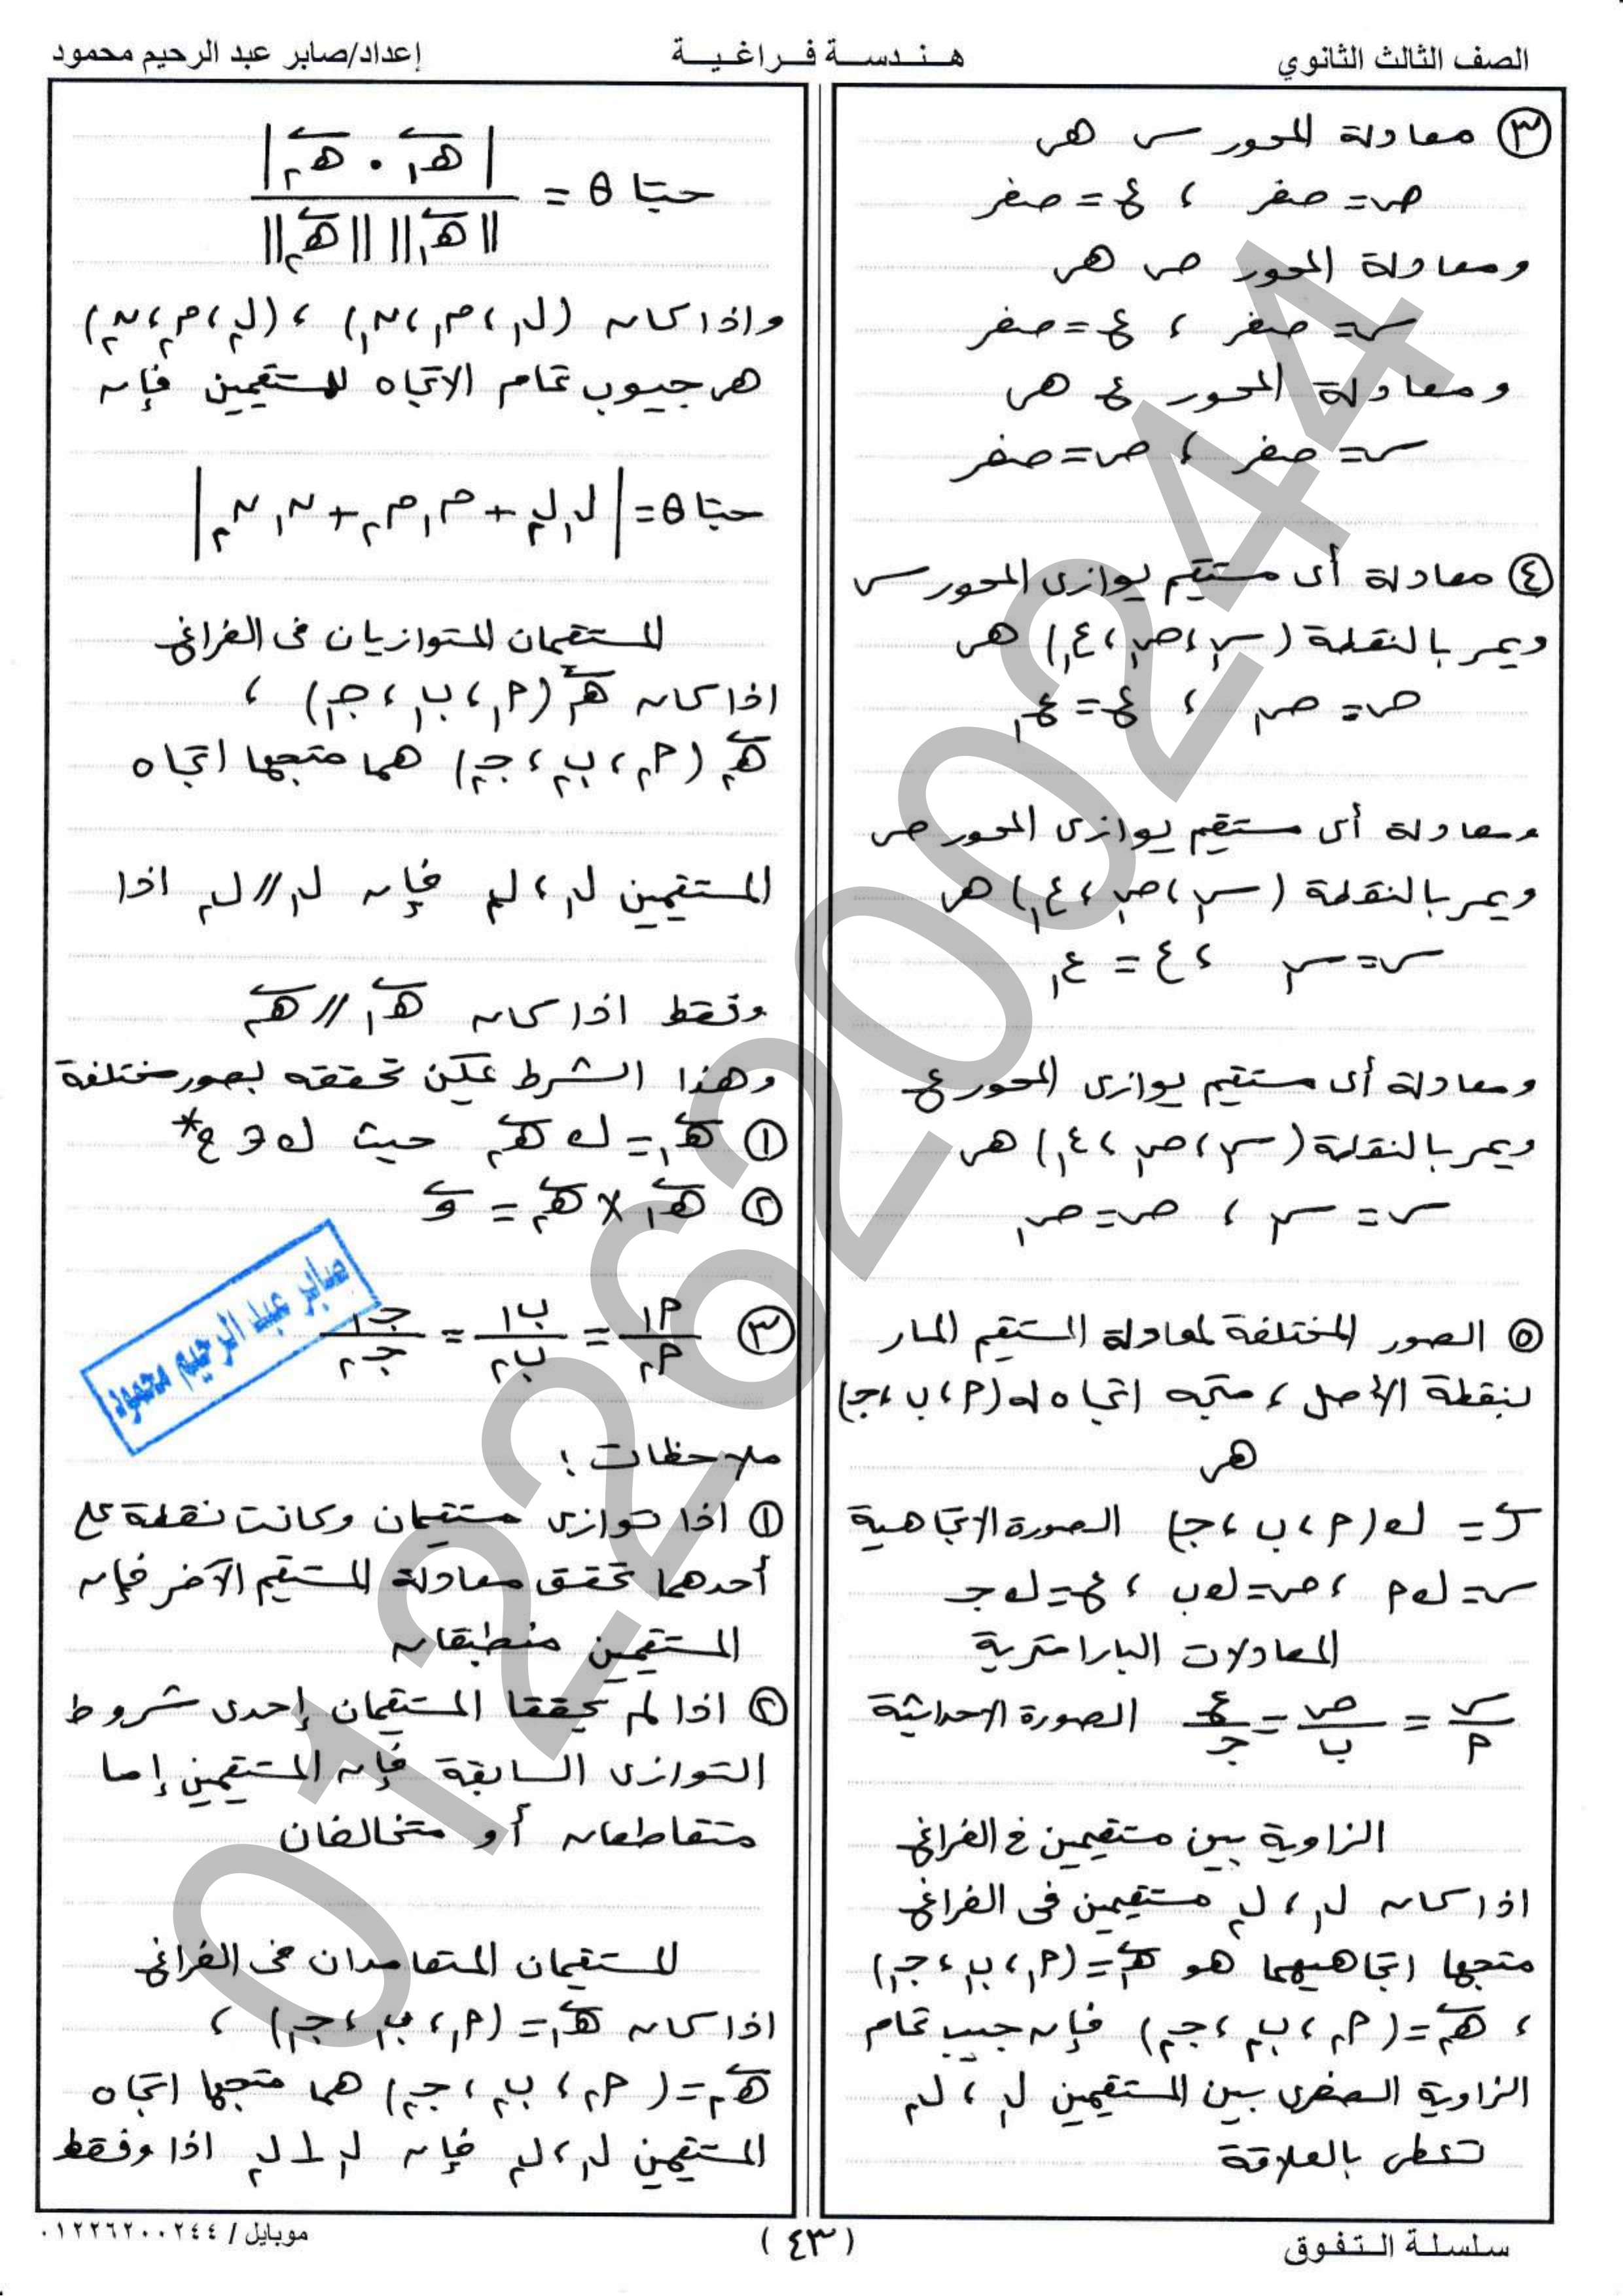 الصف الثالث الثانوي
هـنـدسـة فـراغـيـة
إعداد/صابر عبد الرحيم محمود
٣ معادلة المحور س هى
ص = صفر ، ع = صفر
ومعادلة المحور ص هى
س = صفر ، ع = صفر
ومعادلة المحور ع هى
س = صفر ، ص = صفر
٤ معادلة أى مستقيم يوازى المحور س
ويمر بالنقطة (س١، ص١، ع١) هى
ص = ص١ ، ع = ع١
ومعادلة أى مستقيم يوازى المحور ص
ويمر بالنقطة (س١، ص١، ع١) هى
س = س١ ، ع = ع١
ومعادلة أى مستقيم يوازى المحور ع
ويمر بالنقطة (س١، ص١، ع١) هى
س = س١ ، ص = ص١
٥ الصور المختلفة لمعادلة المستقيم المار
بنقطة الأصل ، متجه اتجاه له (م، ب، جـ)
هى
ر = ك (م، ب، جـ) الصورة الاتجاهية
س = ك م ، ص = ك ب ، ع = ك جـ
المعادلات البارامترية
س/م = ص/ب = ع/جـ الصورة الاحداثية
الزاوية بين مستقيمين فى الفراغ
اذا كان ل١ ، ل٢ مستقيمين فى الفراغ
متجها اتجاهيهما هو هـ١ = (م١، ب١، جـ١)
، هـ٢ = (م٢، ب٢، جـ٢) فإن جيب تمام
الزاوية الصغرى بين المستقيمين ل١ ، ل٢
تعطى بالعلاقة
حتا θ = |هـ١ · هـ٢| / ||هـ١|| ||هـ٢||
واذا كان (ل١، م١، ن١) ، (ل٢، م٢، ن٢)
هى جيوب تمام الاتجاه للمستقيمين فإن
حتا θ = |ل١ ل٢ + م١ م٢ + ن١ ن٢|
المستقيمان المتوازيان فى الفراغ
اذا كان هـ١ (م١، ب١، جـ١) ،
هـ٢ (م٢، ب٢، جـ٢) هما متجها اتجاه
المستقيمين ل١ ، ل٢ فإن ل١ // ل٢ اذا
وفقط اذا كان هـ١ // هـ٢
وهذا الشرط يمكن تحققه بصور مختلفة
١ هـ١ = ك هـ٢ حيث ك ∋ ح*
٢ هـ١ × هـ٢ = و
٣ م١/م٢ = ب١/ب٢ = جـ١/جـ٢
صابر عبد الرحيم محمود
ملاحظات :
١ اذا توازى مستقيمان وكانت نقطة على
أحدهما تحقق معادلة المستقيم الآخر فإن
المستقيمين منطبقان
٢ اذا لم يحققا المستقيمان إحدى شروط
التوازى السابقة فإن المستقيمين إما
متقاطعان أو متخالفان
المستقيمان المتعامدان فى الفراغ
اذا كان هـ١ = (م١، ب١، جـ١) ،
هـ٢ = (م٢، ب٢، جـ٢) هما متجها اتجاه
المستقيمين ل١ ، ل٢ فإن ل١ ⊥ ل٢ اذا وفقط
01226200244
سلسلة التفوق
(٤٣)
موبايل / ٠١٢٢٦٢٠٠٢٤٤